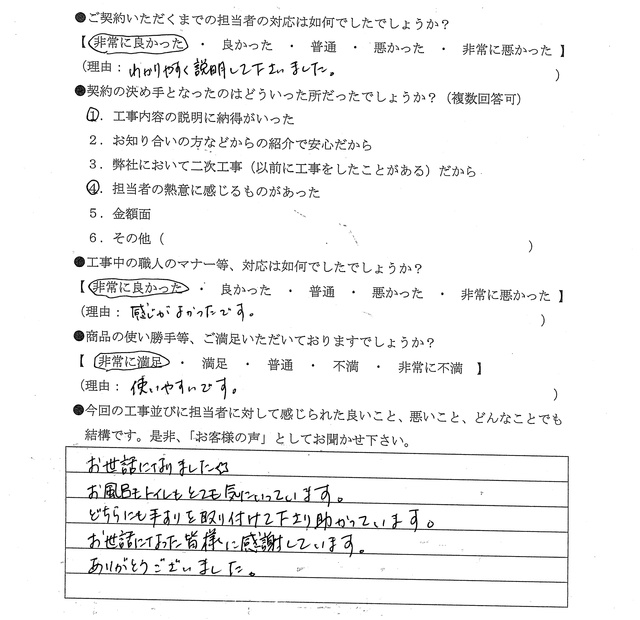 ●ご契約いただくまでの担当者の対応は如何でしたでしょうか？
【 非常に良かった ・ 良かった ・ 普通 ・ 悪かった ・ 非常に悪かった 】
（理由：わかりやすく説明して下さいました。 ）
●契約の決め手となったのはどういった所だったでしょうか？（複数回答可）
１．工事内容の説明に納得がいった
２．お知り合いの方などからの紹介で安心だから
３．弊社において二次工事（以前に工事をしたことがある）だから
４．担当者の熱意に感じるものがあった
５．金額面
６．その他（ ）
●工事中の職人のマナー等、対応は如何でしたでしょうか？
【 非常に良かった ・ 良かった ・ 普通 ・ 悪かった ・ 非常に悪かった 】
（理由：感じがよかったです。 ）
●商品の使い勝手等、ご満足いただいておりますでしょうか？
【 非常に満足 ・ 満足 ・ 普通 ・ 不満 ・ 非常に不満 】
（理由：使いやすいです。 ）
●今回の工事並びに担当者に対して感じられた良いこと、悪いこと、どんなことでも
結構です。是非、「お客様の声」としてお聞かせ下さい。
お世話になりました☆
お風呂もトイレもとても気にいっています。
どちらにも手すりを取り付けて下さり助かっています。
お世話になった皆様に感謝しています。
ありがとうございました。